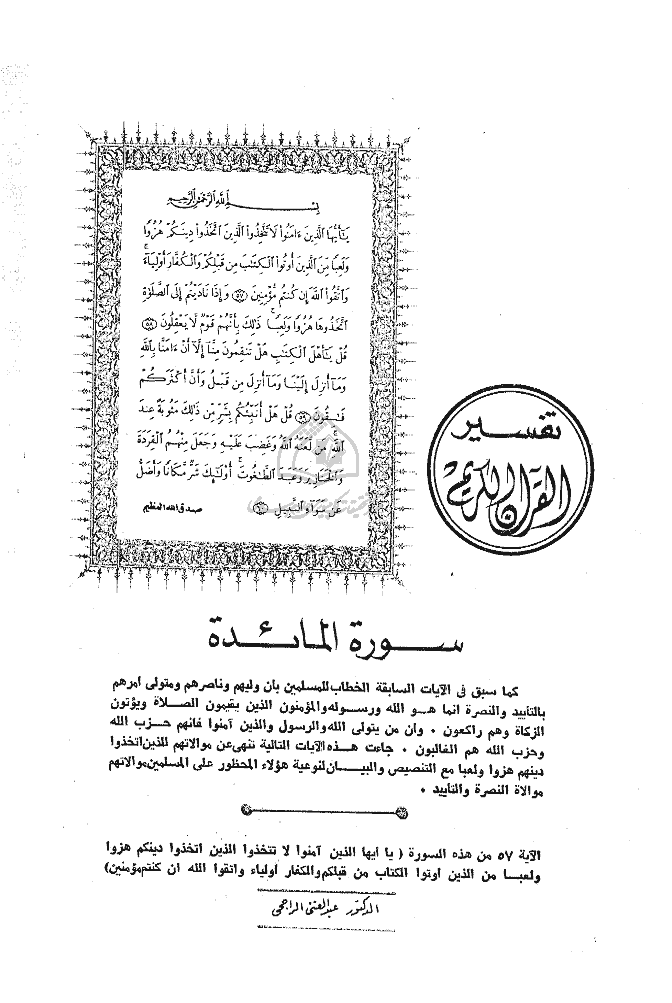 بِسْمِ اللَّهِ الرَّحْمَٰنِ الرَّحِيمِ
يَٰٓأَيُّهَا الَّذِينَ ءَامَنُوا۟ لَا تَتَّخِذُوا۟ الَّذِينَ اتَّخَذُوا۟ دِينَكُمْ هُزُوًا
وَلَعِبًا مِّنَ الَّذِينَ أُوتُوا۟ الْكِتَٰبَ مِن قَبْلِكُمْ وَالْكُفَّارَ أَوْلِيَآءَ ۚ
وَاتَّقُوا۟ اللَّهَ إِن كُنتُم مُّؤْمِنِينَ ٥٧ وَإِذَا نَادَيْتُمْ إِلَى الصَّلَوٰةِ
اتَّخَذُوهَا هُزُوًا وَلَعِبًا ۚ ذَٰلِكَ بِأَنَّهُمْ قَوْمٌ لَّا يَعْقِلُونَ ٥٨
قُلْ يَٰٓأَهْلَ الْكِتَٰبِ هَلْ تَنقِمُونَ مِنَّآ إِلَّآ أَنْ ءَامَنَّا بِاللَّهِ
وَمَآ أُنزِلَ إِلَيْنَا وَمَآ أُنزِلَ مِن قَبْلُ وَأَنَّ أَكْثَرَكُمْ
فَٰسِقُونَ ٥٩ قُلْ هَلْ أُنَبِّئُكُم بِشَرٍّ مِّن ذَٰلِكَ مَثُوبَةً عِندَ
اللَّهِ ۚ مَن لَّعَنَهُ اللَّهُ وَغَضِبَ عَلَيْهِ وَجَعَلَ مِنْهُمُ الْقِرَدَةَ
وَالْخَنَازِيرَ وَعَبَدَ الطَّٰغُوتَ ۚ أُو۟لَٰٓئِكَ شَرٌّ مَّكَانًا وَأَضَلُّ
عَن سَوَآءِ السَّبِيلِ ٦٠ صدق الله العظيم
تفسير
القرآن الكريم
سورة المائدة
كما سبق في الآيات السابقة الخطاب للمسلمين بأن وليهم وناصرهم ومتولى أمرهم
بالتأييد والنصرة انما هو الله ورسوله والمؤمنون الذين يقيمون الصلاة ويؤتون
الزكاة وهم راكعون ٠ وان من يتولى الله والرسول والذين آمنوا فانهم حزب الله
وحزب الله هم الغالبون ٠ جاءت هذه الآيات التالية تنهى عن موالاتهم للذين اتخذوا
دينهم هزوا ولعبا مع التنصيص والبيان لنوعية هؤلاء المحظور على المسلمين موالاتهم
موالاة النصرة والتأييد ٠
الآية ٥٧ من هذه السورة ( يا ايها الذين آمنوا لا تتخذوا الذين اتخذوا دينكم هزوا
ولعبا من الذين اوتوا الكتاب من قبلكم والكفار أولياء واتقوا الله ان كنتم مؤمنين)
الدكتور عبد الغنى الراجحى